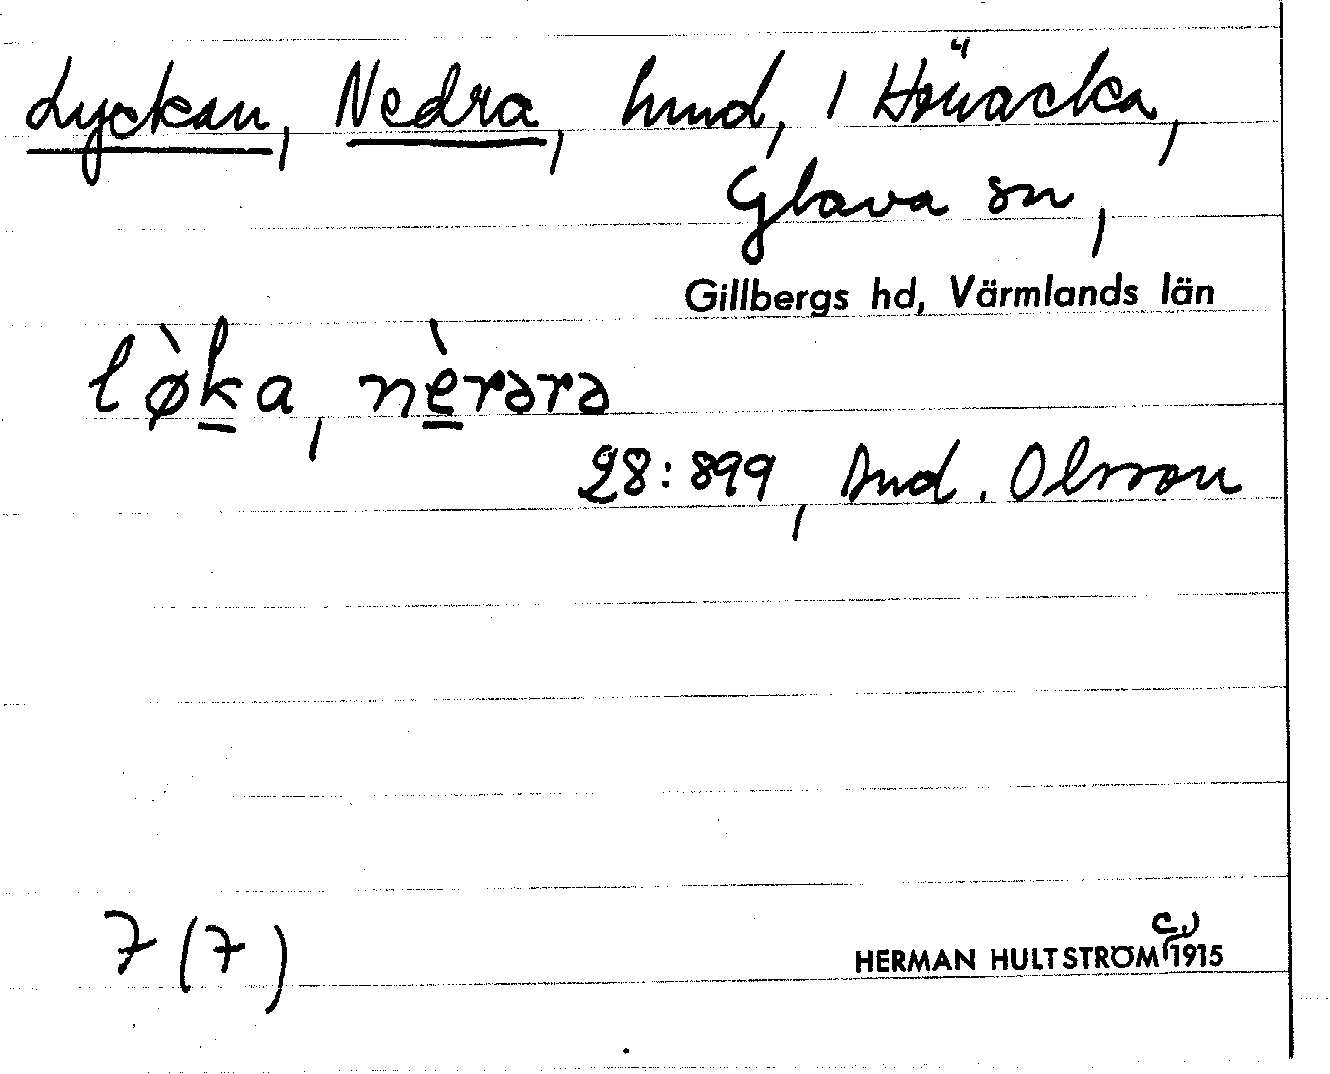 Lyckan, Nedra, hmd, 1 Hövacka,
Glava sn,
Gillbergs hd, Värmlands län
lø̀ka, nèrərə
28:899, And. Olsson
7 (7)
HERMAN HULTSTRÖM c.1915